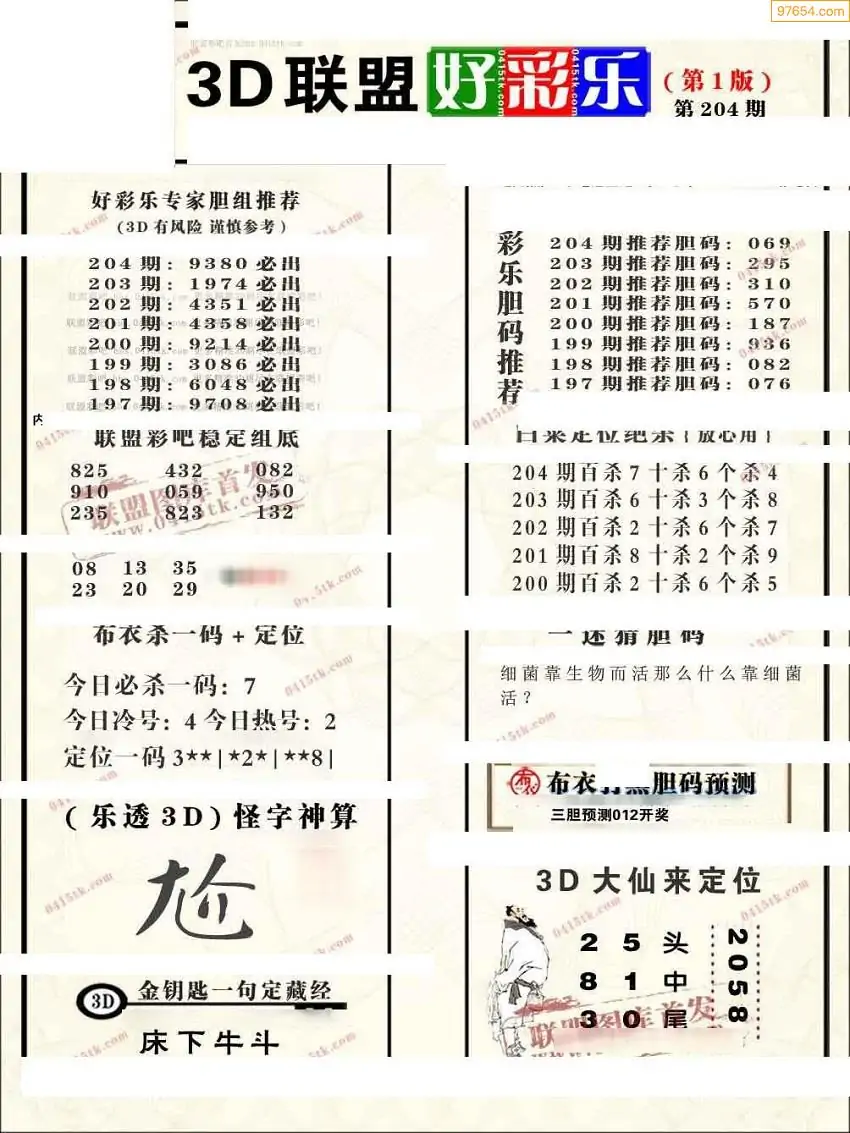 97654.com
3D联盟好彩乐
0415tk.com
0415tk.com
(第1版)
第204期
好彩乐专家胆组推荐
(3D有风险 谨慎参考)
204期: 9380必出
203期: 1974必出
202期: 4351必出
201期: 4358必出
200期: 9214必出
199期: 3086必出
198期: 6048必出
197期: 9708必出
联盟彩吧稳定组底
825 432 082
910 059 950
235 823 132
联盟图库首发
www.0415tk.com
08 13 35
23 20 29
布衣杀一码+定位
今日必杀一码: 7
今日冷号: 4 今日热号: 2
定位一码3**|*2*|**8|
(乐透3D)怪字神算
尬
3D 金钥匙一句定藏经
床下牛斗
彩乐胆码推荐
204期推荐胆码: 069
203期推荐胆码: 295
202期推荐胆码: 310
201期推荐胆码: 570
200期推荐胆码: 187
199期推荐胆码: 936
198期推荐胆码: 082
197期推荐胆码: 076
204期百杀7十杀6个杀4
203期百杀6十杀3个杀8
202期百杀2十杀6个杀7
201期百杀8十杀2个杀9
200期百杀2十杀6个杀5
一迷猜胆码
细菌靠生物而活那么什么靠细菌
活?
布衣 胆码预测
三胆预测012开奖
3D大仙来定位
2 5 头
8 1 中
3 0 尾
2058
联盟图库首发